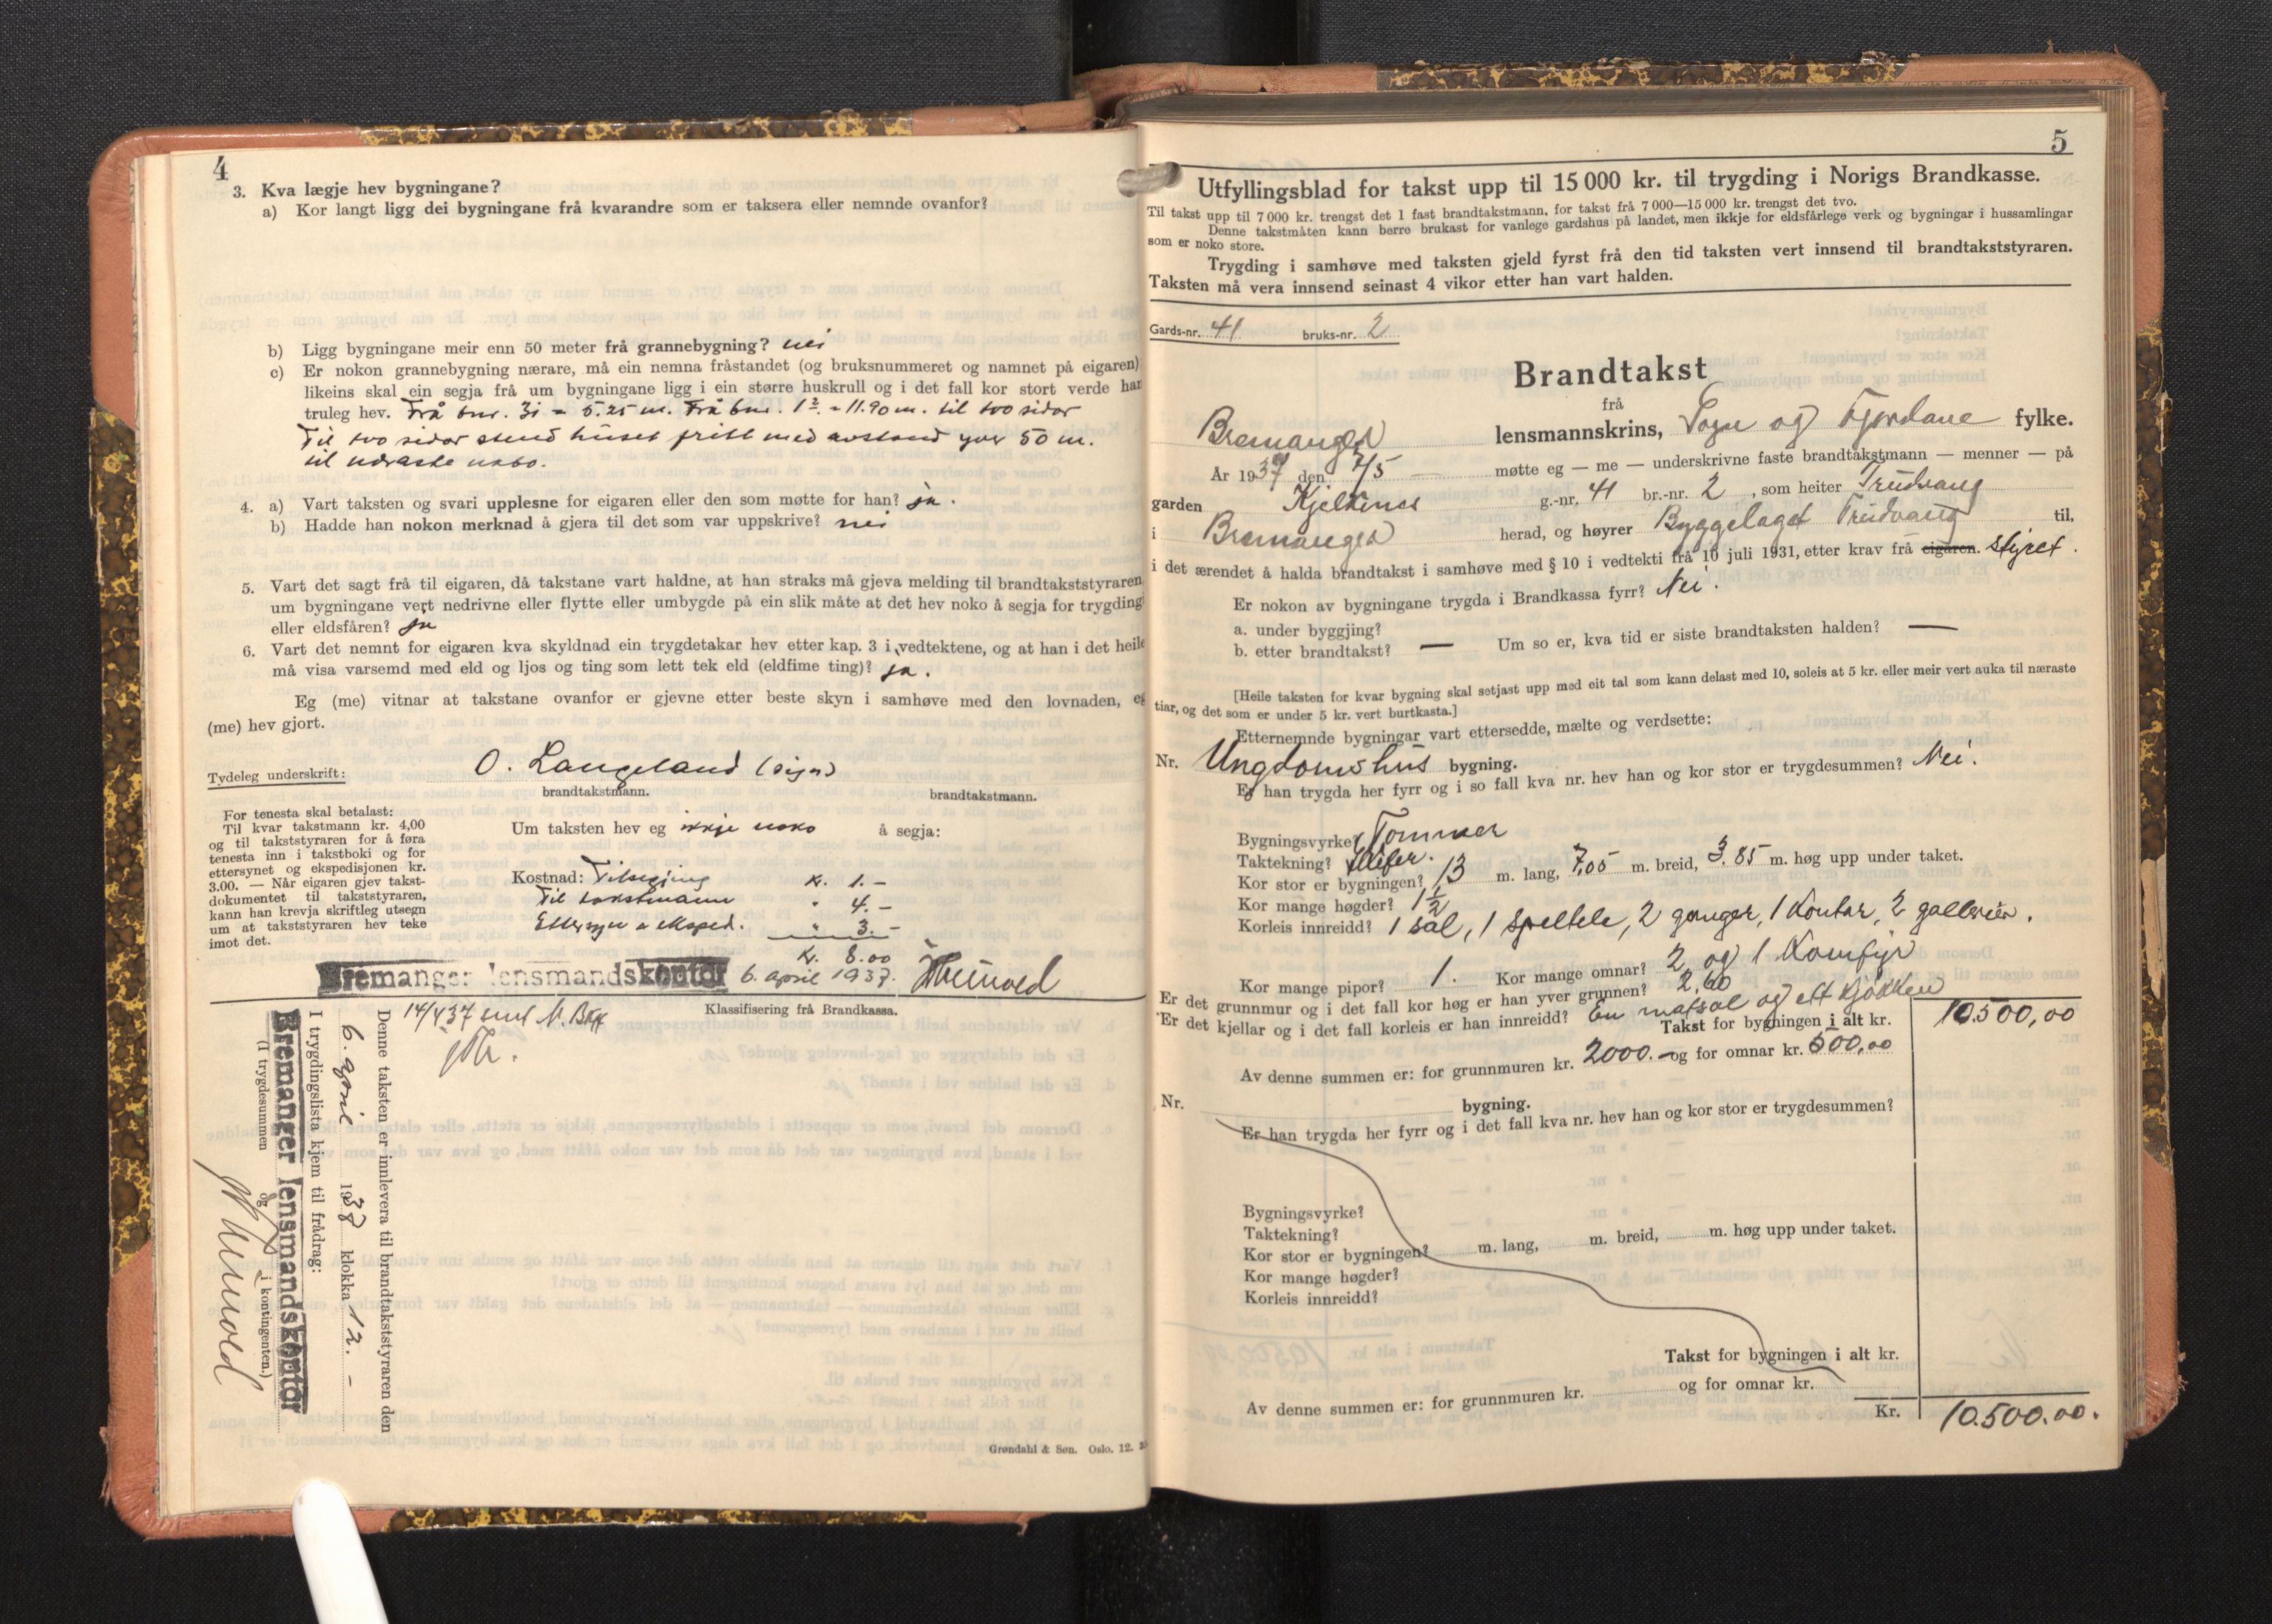 4
3. Kva lægje hev bygningane?
a) Kor langt ligg dei bygningane frå kvarandre som er taksera eller nemnde ovanfor?
b) Ligg bygningane meir enn 50 meter frå grannebygning? nei
c) Er nokon grannebygning nærare, må ein nemna fråstandet (og bruksnummeret og namnet på eigaren)
likeins skal ein segja frå um bygningane ligg i ein større huskrull og i det fall kor stort verde han
truleg hev. Frå bnr. 31 = 5.25 m. Frå bnr. 1 2. = 11.90 m. til tvo sidor
Til tvo sidor stend huset fritt med avstand yver 50 m.
til næraste nabo.
4. a) Vart taksten og svari upplesne for eigaren eller den som møtte for han? ja.
b) Hadde han nokon merknad å gjera til det som var uppskrive? nei
5. Vart det sagt frå til eigaren, då takstane vart haldne, at han straks må gjeva melding til brandtakststyraren
um bygningane vert nedrivne eller flytte eller umbygde på ein slik måte at det hev noko å segja for trygding
eller eldsfåren? ja
6. Vart det nemnt for eigaren kva skyldnad ein trygdetakar hev etter kap. 3 i vedtektene, og at han i det heile
må visa varsemd med eld og ljos og ting som lett tek eld (eldfime ting)? ja.
Eg (me) vitnar at takstane ovanfor er gjevne etter beste skyn i samhøve med den lovnaden, eg
(me) hev gjort.
Tydeleg underskrift: O. Langeland (sign)
brandtakstmann. brandtakstmann.
For tenesta skal betalast:
Til kvar takstmann kr. 4,00
og til takststyraren for å føra
tenesta inn i takstboki og for
ettersynet og ekspedisjonen kr.
3.00. — Når eigaren gjev takst-
dokumentet til takststyraren,
kann han krevja skriftleg utsegn
um at takststyraren hev teke
imot det.
Um taksten hev eg ikkje noko å segja:
Kostnad: Tilsegjing kr. 1.-
Til takstmann " 4.-
Ettersyn o eksped. " 3.-
Kr. 8.00
Bremanger lensmandskontor 6. april 1937.
14/4 37 sent N. Bkk
Klassifisering frå Brandkassa.
Denne taksten er innlevera til brandtakststyraren den
6. april 1937 klokka 12. -
I trygdingslista kjem til frådrag:
Bremanger lensmandskontor
(I trygdesummen og i kontingenten.)
Grøndahl & Søn. Oslo. 12.
5
Utfyllingsblad for takst upp til 15 000 kr. til trygding i Norigs Brandkasse.
Til takst upp til 7 000 kr. trengst det 1 fast brandtakstmann, for takst frå 7 000—15 000 kr. trengst det tvo.
Denne takstmåten kann berre brukast for vanlege gardshus på landet, men ikkje for eldsfårlege verk og bygningar i hussamlingar
som er noko store.
Trygding i samhøve med taksten gjeld fyrst frå den tid taksten vert innsend til brandtakststyraren.
Taksten må vera innsend seinast 4 vikor etter han vart halden.
Gards-nr. 41 bruks-nr. 2
Brandtakst
frå
Bremanger lensmannskrins, Sogn og Fjordane fylke.
År 1937 den 7/5 møtte eg — me — underskrivne faste brandtakstmann — menner — på
garden Kjelkenes g.-nr. 41 br.-nr. 2, som heiter Trudvang
i Bremanger herad, og høyrer Byggelaget Trudvang til,
i det ærendet å halda brandtakst i samhøve med § 10 i vedtekti frå 10 juli 1931, etter krav frå eigaren. styret.
Er nokon av bygningane trygda i Brandkassa fyrr? Nei.
a. under byggjing?
b. etter brandtakst? — Um so er, kva tid er siste brandtaksten halden? —
[Heile taksten for kvar bygning skal setjast upp med eit tal som kann delast med 10, soleis at 5 kr. eller meir vert auka til næraste
tiar, og det som er under 5 kr. vert burtkasta.]
Etternemnde bygningar vart ettersedde, mælte og verdsette:
Nr. Ungdomshus bygning.
Er han trygda her fyrr og i so fall kva nr. hev han og kor stor er trygdesummen? Nei.
Bygningsvyrke? Tømmer
Taktekning? Skifer.
Kor stor er bygningen? 13 m. lang, 7,05 m. breid, 3.85 m. høg upp under taket.
Kor mange høgder? 1 1/2
Korleis innreidd? 1 sal, 1 speltele, 2 ganger, 1 kontor, 2 gallerier.
Kor mange pipor? 1. Kor mange omnar? 2 og 1 Komfyr
Er det grunnmur og i det fall kor høg er han yver grunnen? 2,60
Er det kjellar og i det fall korleis er han innreidd? En matsal og ett kjøkken
Takst for bygningen i alt kr. 10.500,00
Av denne summen er: for grunnmuren kr. 2000.- og for omnar kr. 500,00
Nr. bygning.
Er han trygda her fyrr og i det fall kva nr. hev han og kor stor er trygdesummen?
Bygningsvyrke?
Taktekning?
Kor stor er bygningen? m. lang, m. breid, m. høg upp under taket.
Kor mange høgder?
Korleis innreidd?
Takst for bygningen i alt kr.
Av denne summen er: for grunnmuren kr. og for omnar kr.
Kr. 10.500.00.